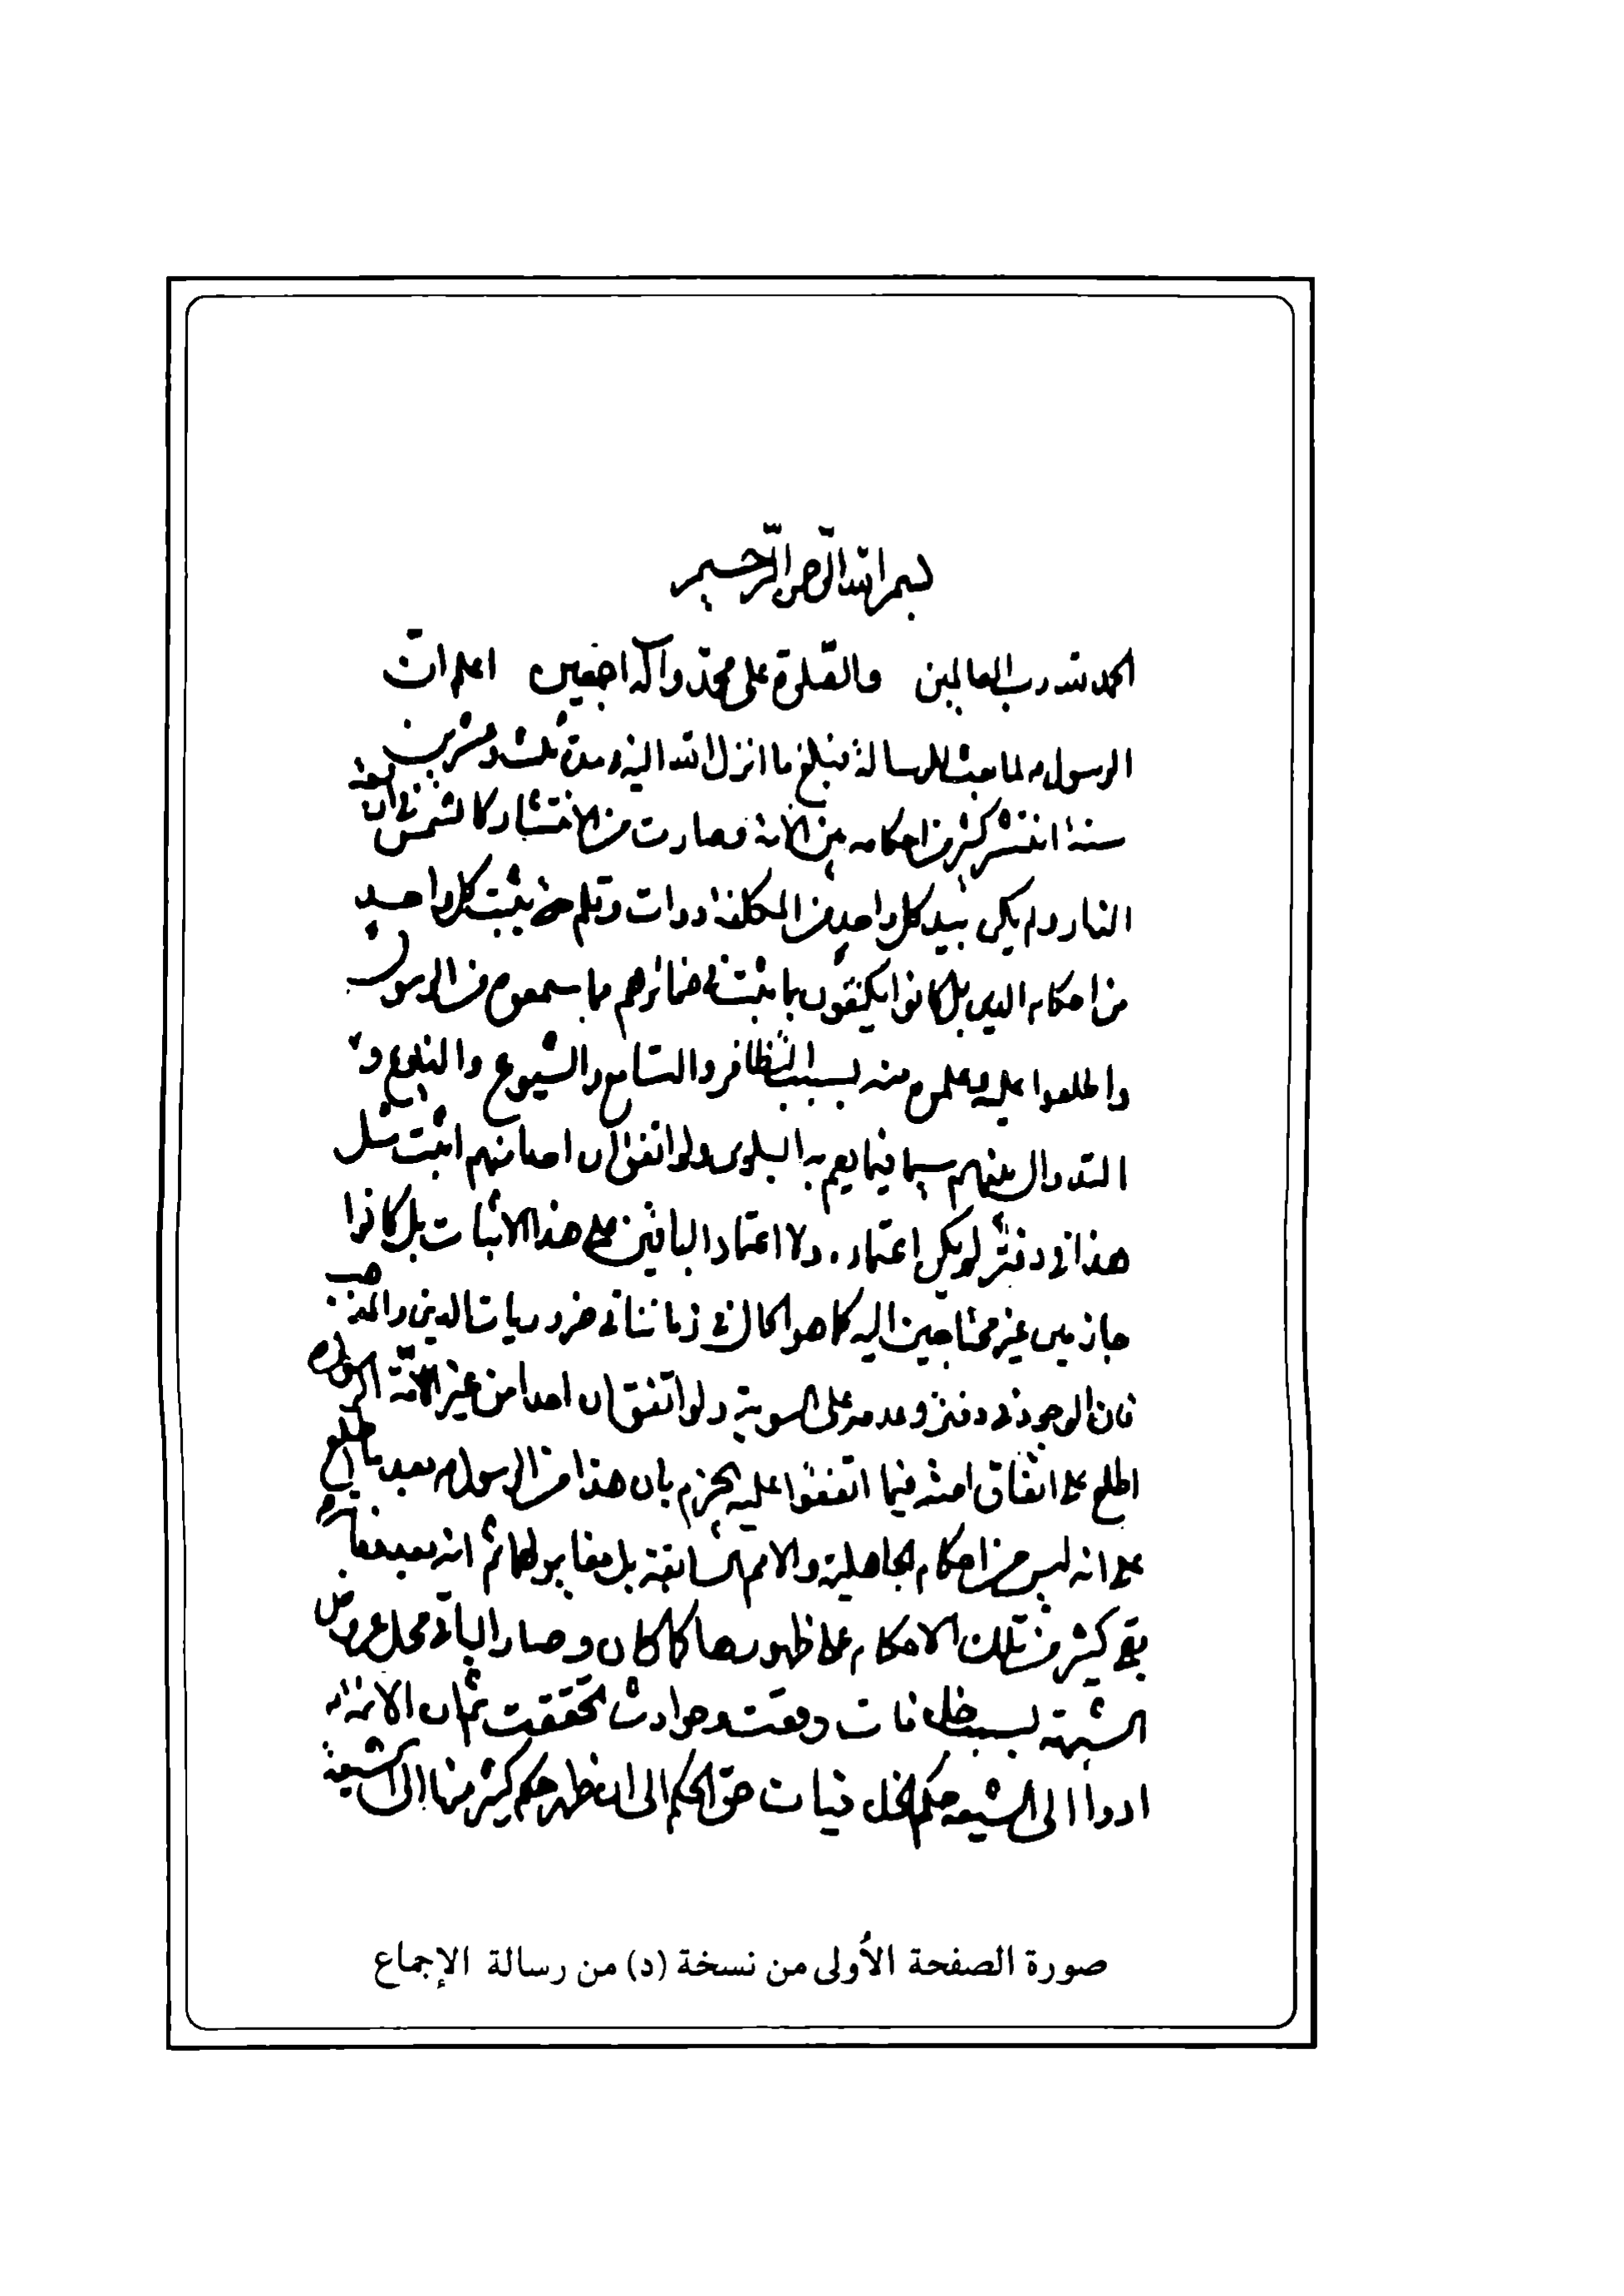 بسم الله الرحمن الرحيم
الحمد لله رب العالمين والصلوة على محمد وآله اجمعين اعلم ان
الرسول ص لما بعث للرسالة فبلغ ما انزل الله اليه في مدة ثلث وعشرين
سنة انتشر كثير من احكامه بين الامة وصارت من الانتشار كالشمس في رابعة
النهار ولم يكن بيد كل واحد من المكلفين دوات وقلم حتى يثبت كل واحد
من احكام الدين بل كانوا يكتفون بما يثبت في ضمائرهم مما سمعوه من الرسول
واطلعوا عليه وعلموه منه بسبب التظافر والتسامع والشيوع والبلوغ و
التداول بينهم سيما فيما يعم به البلوى ولو اتفق ان احدا منهم اثبت مثل
هذا في دفتر لم يكن اعتماده ولا اعتماد الباقين على هذا الاثبات بل كانوا
جازمين غير محتاجين اليه كما هو الحال في زماننا في ضروريات الدين والمذهب
فان الوجود في دفتر وعدمه على السوية ولو اتفق ان احدا من غير الامة
اطلع على اتفاق امته فيما اتفقوا عليه يجزم بان هذا من الرسول ص بعد ما اطلع
على انه ليس من احكام الجاهلية والامم السابقة بل مغاير لها ثم انه بعد
بقى كثير من تلك الاحكام على ظهورها كما كان وصار الباقي محل عروض
الشبهة بسبب خلافات وقعت وحوادث تحققت ثم ان الائمة
ادوا الى الشيعة حكم الخلافيات حق الحكم الى ان ظهر حكم كثير منها الى الشيعة
صورة الصفحة الأولى من نسخة (د) من رسالة الإجماع